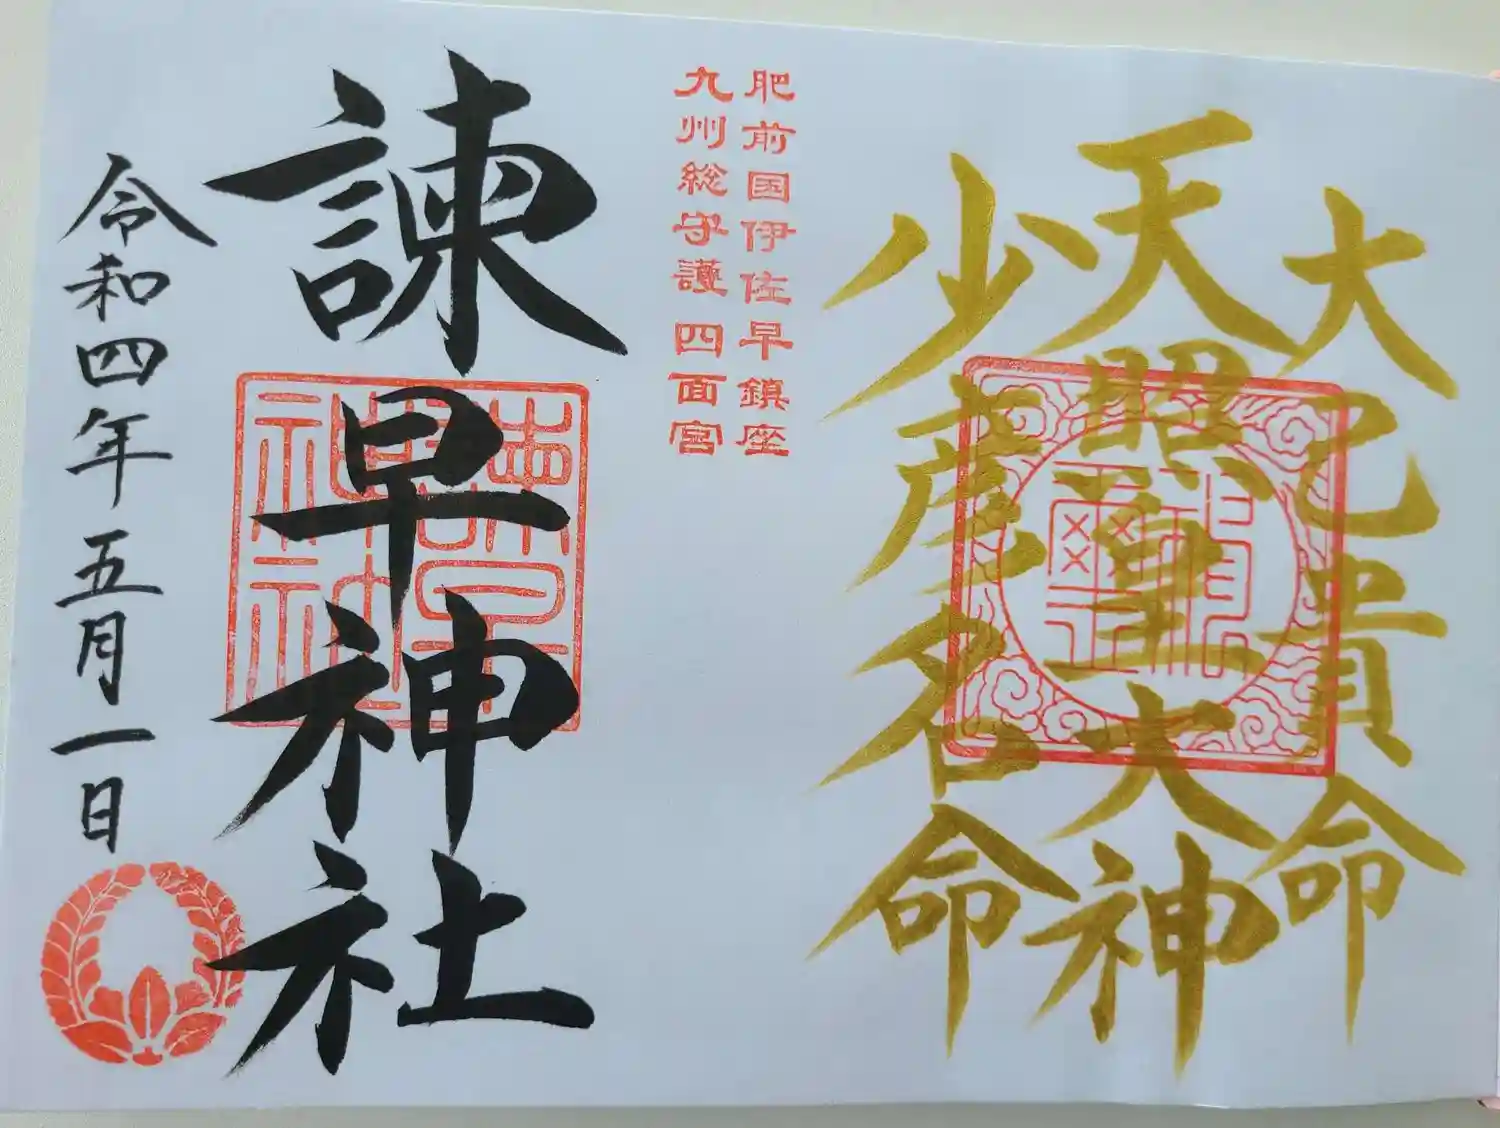 大己貴命
天照皇大神
少彦名命
肥前国伊佐早鎮座
九州総守護四面宮
諫早神社
令和四年五月一日
諫早神社